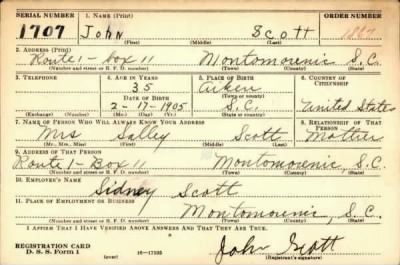 SERIAL NUMBER 1. NAME (Print) ORDER NUMBER
1707 John Scott 1887
(First) (Middle) (Last)
2. ADDRESS (Print)
Route 1 - box 11 Montomorenic S.C.
(Number and street or R. F. D. number) (Town) (County) (State)
3. TELEPHONE 4. AGE IN YEARS 5. PLACE OF BIRTH 6. COUNTRY OF CITIZENSHIP
35 Aiken
DATE OF BIRTH (Town or county)
2-17-1905 S.C. United States
(Exchange) (Number) (Mo.) (Day) (Yr.) (State or country)
7. NAME OF PERSON WHO WILL ALWAYS KNOW YOUR ADDRESS 8. RELATIONSHIP OF THAT PERSON
Mrs Salley Scott Mother
(Mr., Mrs., Miss) (First) (Middle) (Last)
9. ADDRESS OF THAT PERSON
Route 1 - Box 11 Montomorenic, S.C.
(Number and street or R. F. D. number) (Town) (County) (State)
10. EMPLOYER'S NAME
Sidney Scott
11. PLACE OF EMPLOYMENT OR BUSINESS
Montomorenic, S.C.
(Number and street or R. F. D. number) (Town) (County) (State)
I AFFIRM THAT I HAVE VERIFIED ABOVE ANSWERS AND THAT THEY ARE TRUE.
REGISTRATION CARD
D. S. S. Form 1 (over) 16—17105 John Scott
(Registrant's signature)